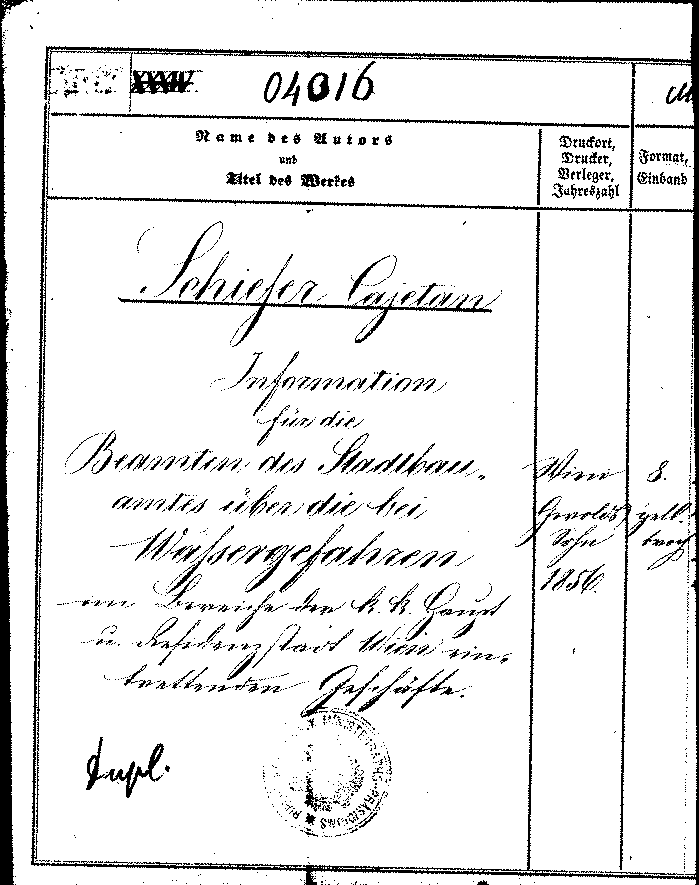 XXXIV 04016 M
Name des Autors
und
Titel des Werkes
Druckort,
Drucker,
Verleger,
Jahreszahl
Format,
Einband
Schiefer Cajetan
Information
für die
Beamten des Stadtbau-
amtes über die bei
Wassergefahren
im Bereiche der k. k. Haupt
u. Residenzstadt Wien ein-
trettenden Geschäfte.
Wien
Gerolds
Sohn
1856.
8.
broch
Dupl.